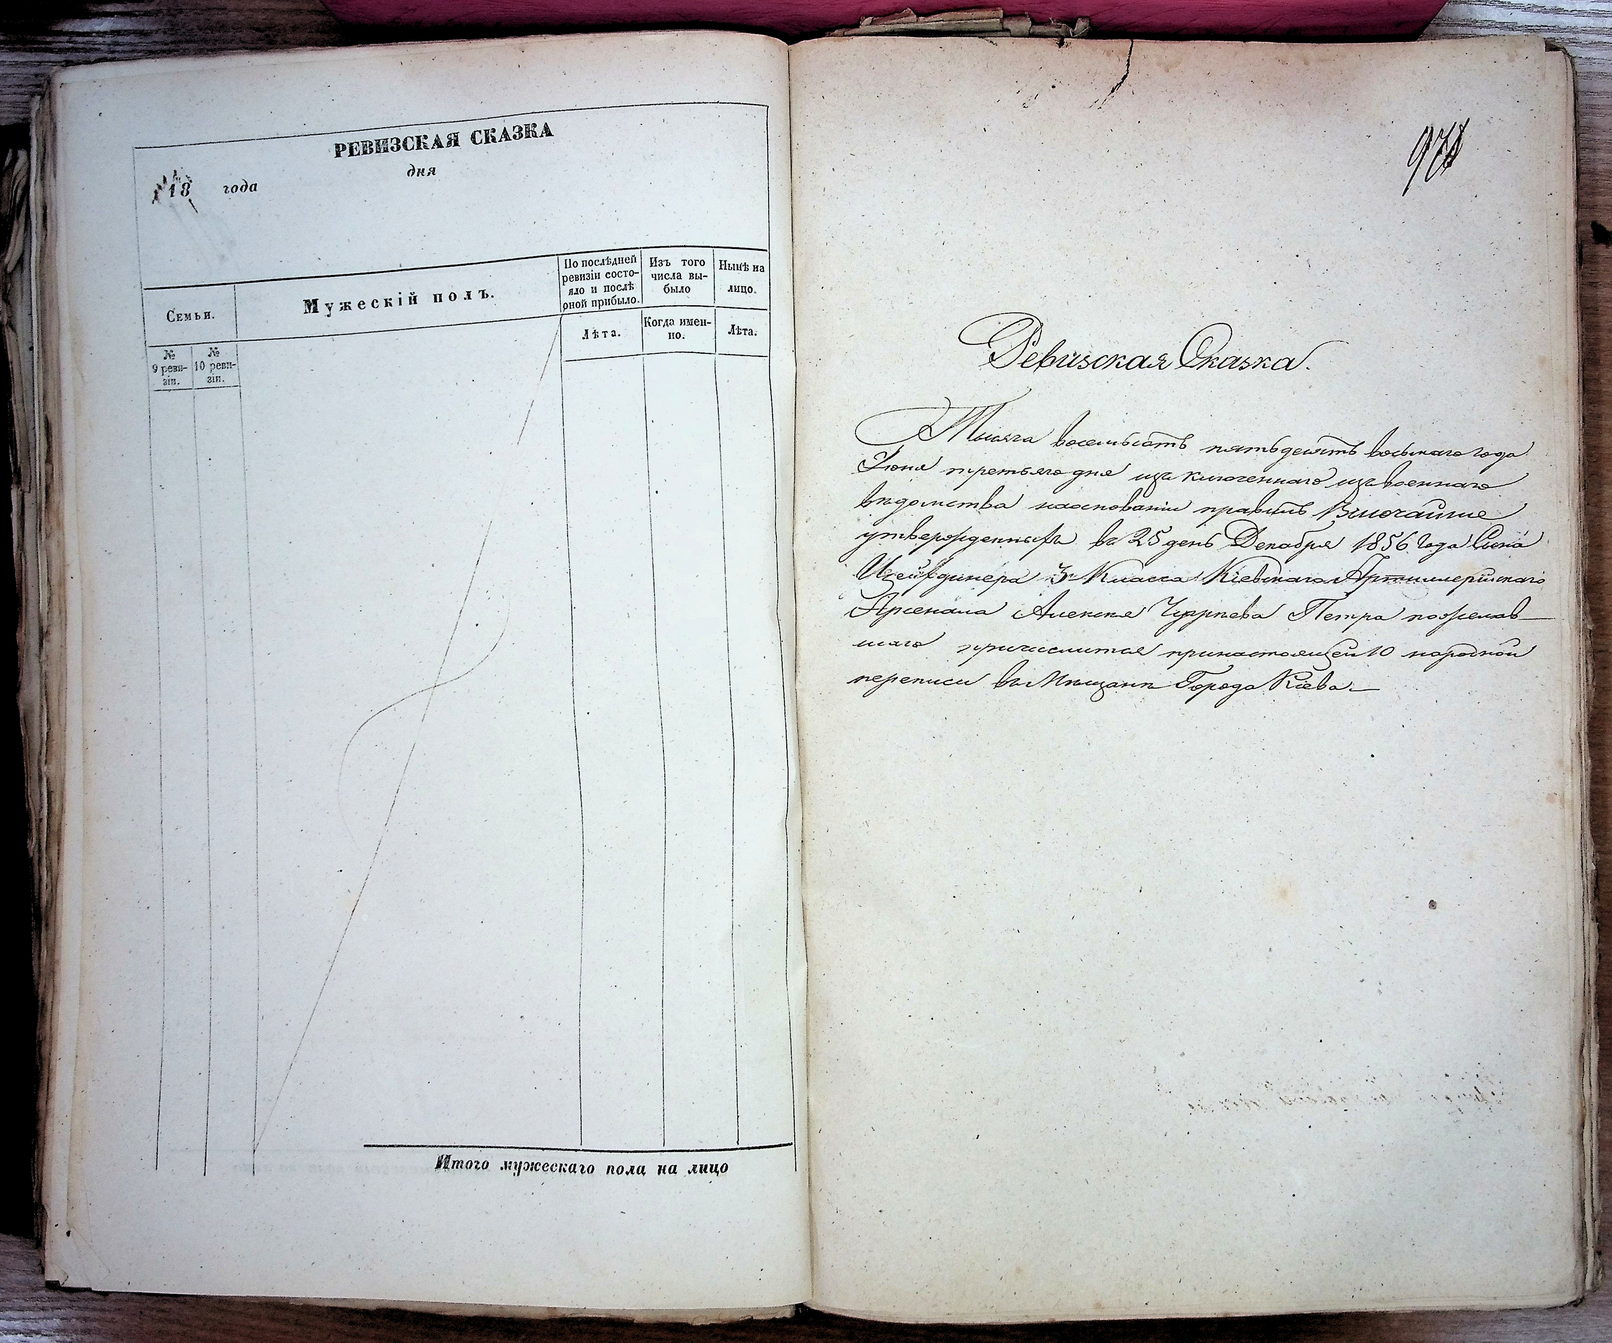 РЕВИЗСКАЯ СКАЗКА
дня
18 года
Семьи.
Мужескій полъ.
По послѣдней ревизіи состояло и послѣ оной прибыло.
Изъ того числа выбыло
Ныпѣ на лицо.
Лѣта.
Когда именно.
Лѣта.
№ 9 ревизіи.
№ 10 ревизіи.
Итого мужескаго пола на лицо
Ревизская Сказка.
Тысяча восемьсотъ пятьдесятъ восьмаго года
Іюня третьяго дня изъ ключеннаго изъ военнаго
вѣдомства на основаніи правилъ Высочайше
утвержденныхъ въ 25 день Декабря 1856 года Сына
Цейхдинера 3го Класса Кіевскаго Артиллерійскаго
Арсенала Алексея Петра пожелав
шаго причислится при настоящей 10 народной
переписи въ Мѣщане Города Кіева